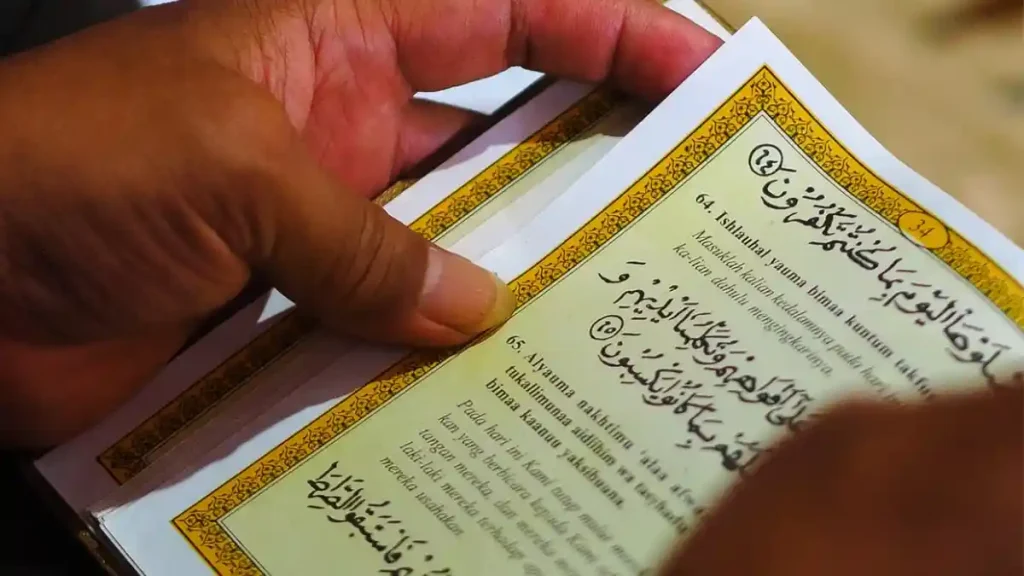 34
اَلْيَوْمَ بِمَا كُنْتُمْ تَكْفُرُوْنَ ﴿٦٤﴾
64. Ishlauhal yauma bimaa kuntum
Masuklah kalian kedalamnya pada hari
ka-lian dahulu mengingkarinya.
اَفْوَاهِهِمْ وَتُكَلِّمُنَا اَيْدِيْهِمْ وَ
بِمَا كَانُوْا يَكْسِبُوْنَ ﴿٦٥﴾
65. Alyauma nakhtimu 'alaa
tukallimunaa aidiihim wa
bimaa kaanuu yaksibuuna.
Pada hari ini Kami tung mulut
kan yang berbicara kepada Kami
tangan mereka, dan mereka
laki-laki mereka terhadap
mereka usahakan.
فَاسْتَبَقُوا الصِّرَاطَ